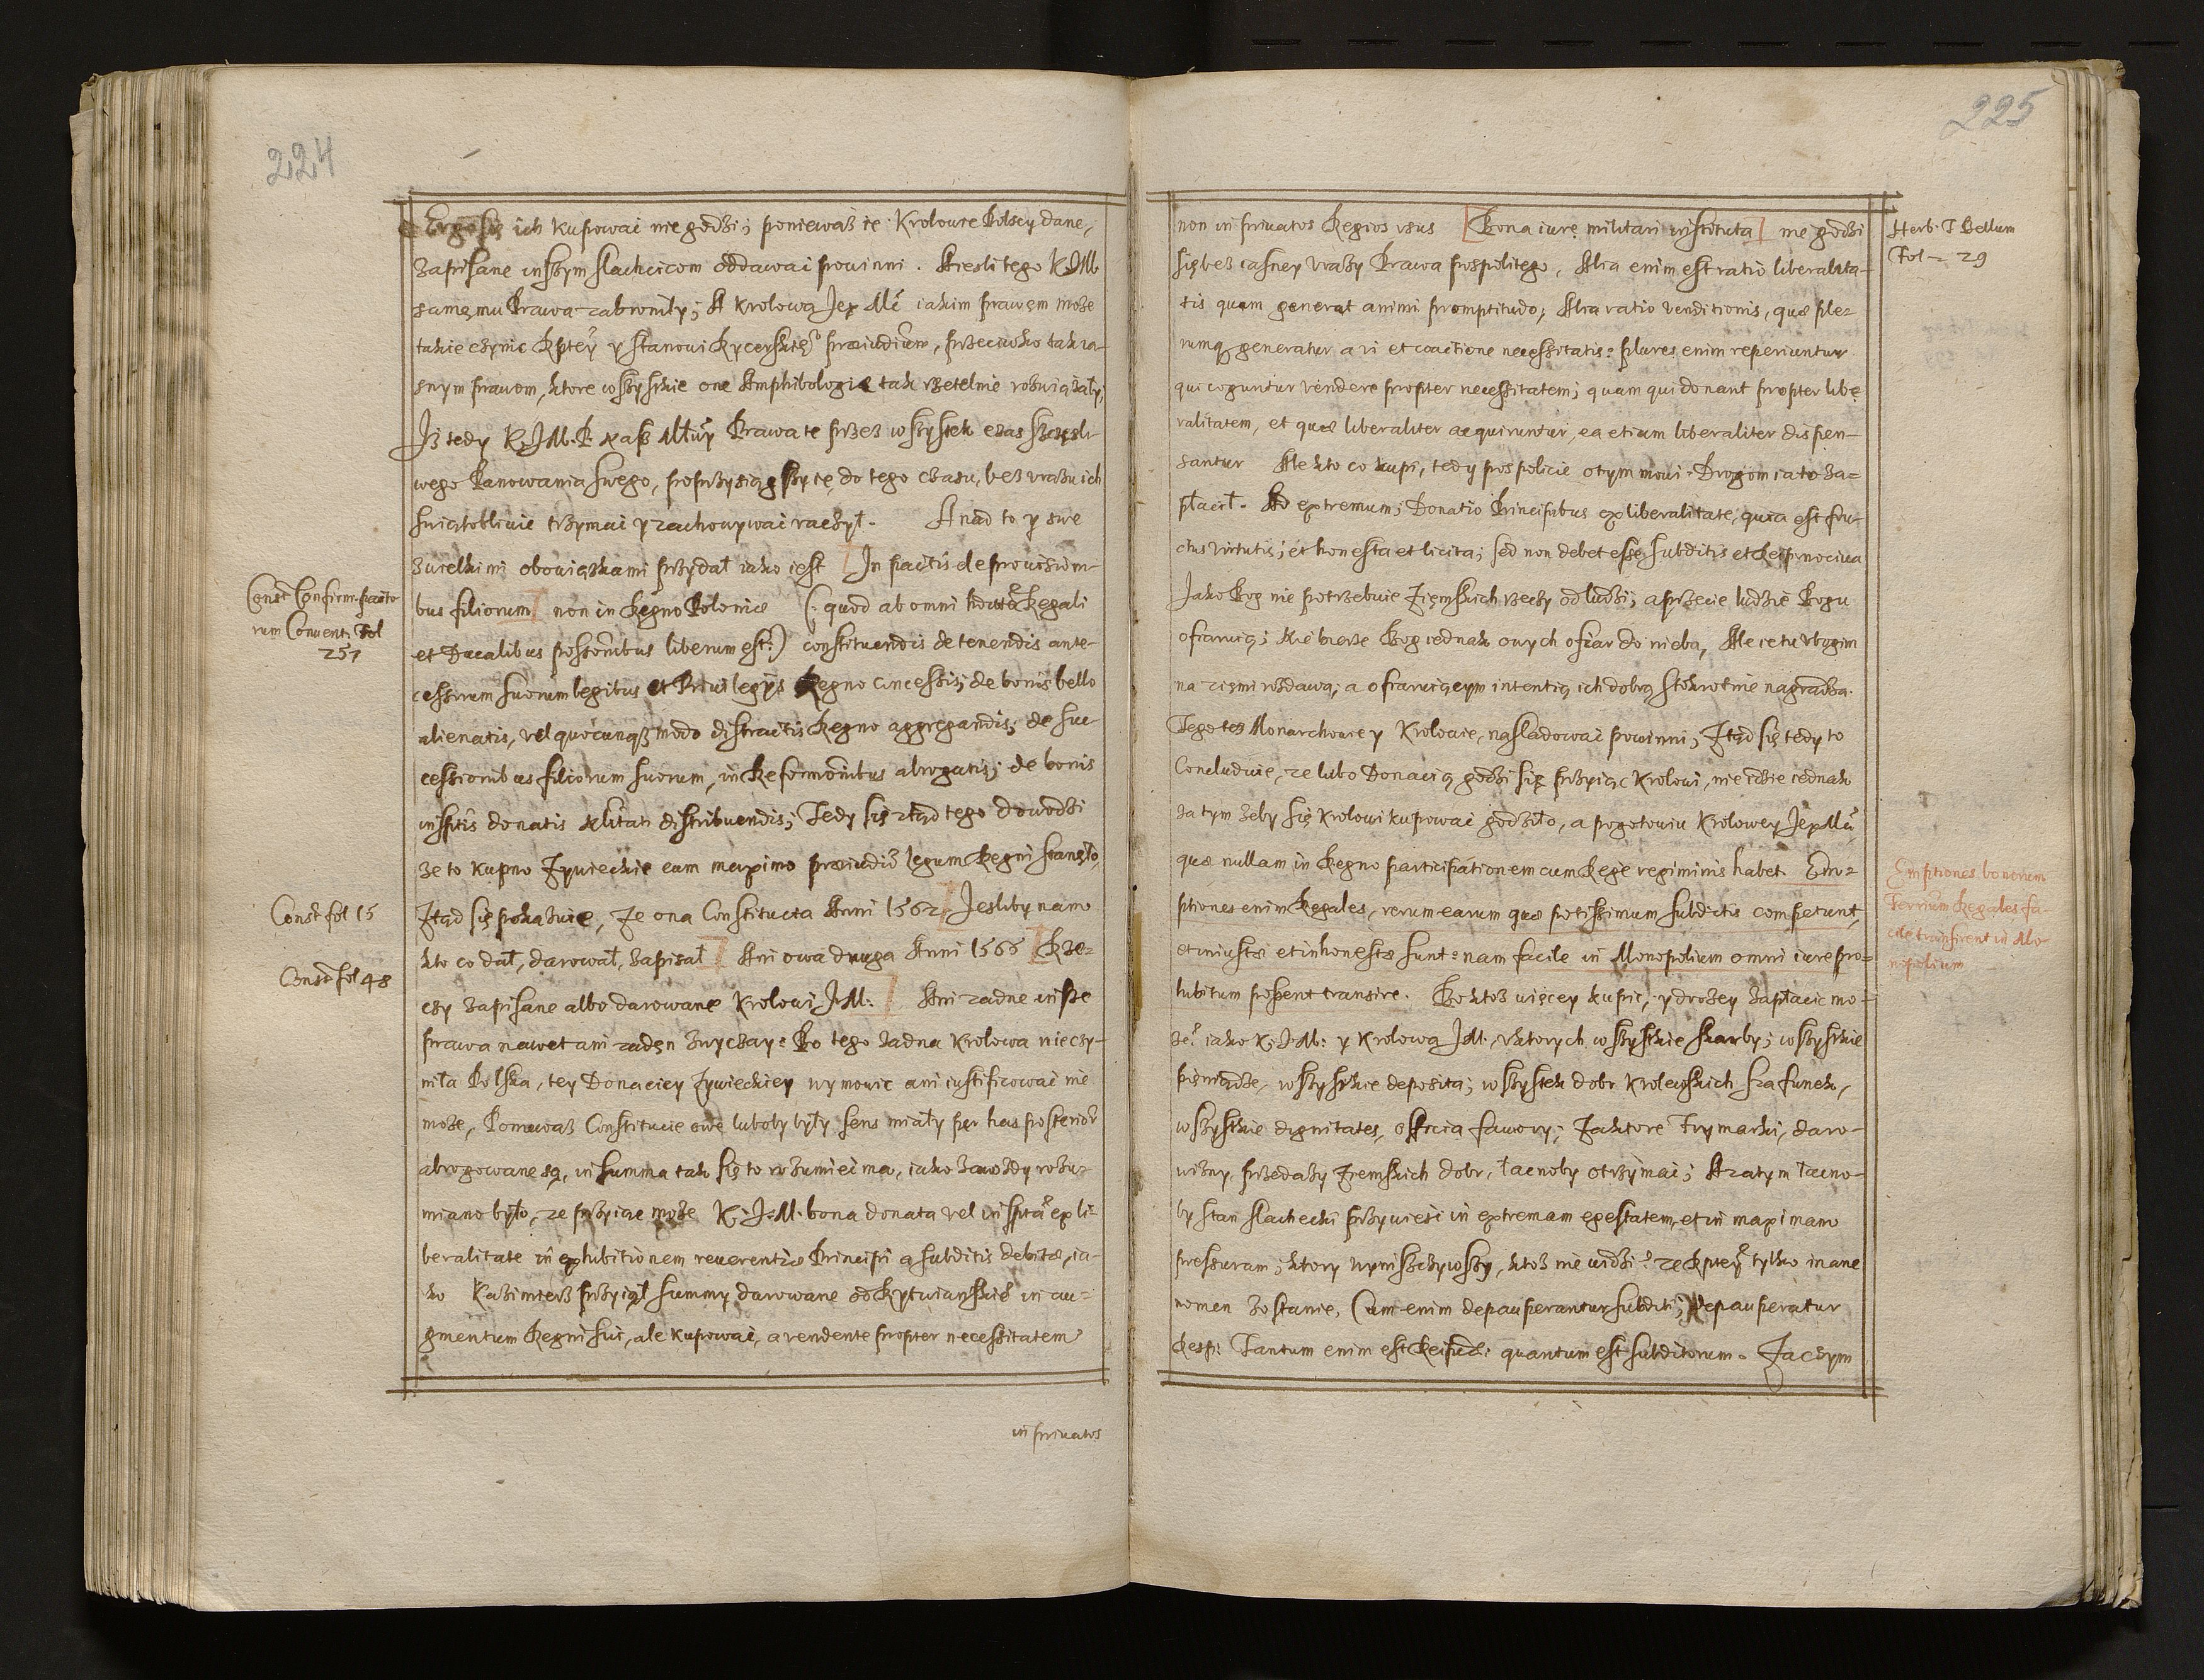 224
Ergo się ich kupować nie godzi; ponieważ ie Krolowie Polscy dane,
zapisane inszym slachcicom oddawać powinni. A iesli tego K.J.M.
samęmu Prawa zabroniły; A Krolowa Jey Mć iakim prawęm może
takie czynić Rptęy y stanowi Rycerskięo præiudicium, przeciwko tak ia-
snym prawom, ktore wszystkie one Amphibologie tak rzetelnie rozwiązały.
Iż tedy K.J.M.P. nasz Młwy Prawa te przez wszytek czas szczęśli-
wego Panowania swego, poprzysiągszy ie, do tego czasu, bez urazu ich
swiątobliwie trzymać y zachowywać raczył. A nad to y swe
zwielkimi obowiąskami przydał iako iest [In pactis de provisioni-
bus filiorum] non in Regno Poloniæ (: quod ab omni Regali
et Ducalibus possonibus liberum est:) constituendis de tenendis ante-
cessorum suorum legibus et Privilegÿs Regno concessis; de bonis bello
alienatis, vel quocunqz modo distractis Regno aggregandis; de suc-
cessionibus filiorum suorum, in Reformonibus abrogatis; de bonis
inscptis donatis Nlitati distribuendis; Tedy się ztąd tego dowodzi
że to kupno Zywieckie cum maximo præiudicio legum Regni stanęło,
Ztąd się pokazuie, Ze ona Constitucia Anni 1562 [Jesliby nam
kto co dał, darował, zapisał] Ani owa druga Anni 1566 [Rze-
czy zapisane albo darowane Krolowi J.M:] Ani zadne insze
prawa nawet ani zadęn zwyczay: Bo tego żadna Krolowa nieczy-
niła Polska, tey Donaciey Zywieckiey wymowić ani iustificować nie
może, Ponieważ Constitucie owe luboby były sens miały per has posterior
abrogowane są, in summa tak się to rozumieć ma, iako zawżdy rozu-
miano było, ze przyiąć może K.J.M. bona donata vel inscpta ex li-
beralitate in exhibitionem reuerentiæ Principi a subditis debitæ, ia-
ko Kazimierz przyiął summy darowane od in au-
gmentum Regni sui, ale kupować, a vendente propter necessitatem
in priuatos
Const Confirm. pacto
rum Convent. Fol
251
Const fol 15
Const fol 48
225
non in priuatos Regios usus [Bona iurę militari instituta] nie godzi
się bez iasney urazy Prawa pospolitego, Alia enim est ratio liberalita-
tis quam generat animi promptitudo; Alia ratio venditionis, quæ ple-
rumq generatur a vi et coactione necessitatis: plures enim reperiuntur
qui coguntur vendere propter necessitatem; quam qui donant propter libe
ralitatem, et quæ liberaliter acquiruntur, ea etium liberaliter dispen-
santur Ale kto co kupi, tedy pospolicie otym mowi. Drogom ia to za-
płacił. Ad extremum; Donatio Principibus ex liberalitate, quia est fru-
ctus virtutis; et honesta et licita; sed non debet esse subditis et Reip nociua
Jako Bog nie potrzebuie Ziemskich rzeczy od ludzi; a przecie ludzie Bogu
ofiaruią; Nie bierze Bog iednak onych ofiar do nieba, Ale ie tu ubogim
na ziemi rozdawa; a ofiaruiącym intentią ich dobrą stokrotnie nagradza.
Tego tez Monarchowie y Krolowie, nasladować powinni; Ztąd się tedy to
Concluduie, ze lubo Donacią godzi się przyiąć Krolowi, nie idzie iednak
za tym żeby się Krolowi kupować godziło, a pogotowiu Krolowey Jey Mci
quæ nullam in Regno participationem cum Rege regiminis habet. Em-
ptiones enim Regales, rerum earum quæ potissimum subditis competunt,
et iniustæ et inhonestæ sunt: nam facile in Monopolium omni iure pro-
hibitum possent transire. Bo ktoż więcey kupić, y drożey zapłacić mo-
że? iako K.J.M: y Krolowa J.M. u ktorych wszystkie skarby; wszystkie
pieniądze, wszystkie deposita; wszystek dobr Krolewskich szafunek,
wszystkie dignitates, officia fawory; Zaktore frymarki, daro-
wizny, przedaży Ziemskich dobr, łacnoby otrzymać; A zatym łacno-
by stan slachecki przywieść in extremam egestatem, et in maximam
pressuram; ktory wyniszczywszy, ktoż nie widzi? ze Rptęy tylko inane
nomen zostanie, Cum enim depauperantur subditi; depauperatur
Resp: Tantum enim est Reipud: quantum est subditorum. Zaczym
Herb. T Bellum
Fol 29
Emptiones bonorum
Terrum Regales fa
cile transirent in Mo
nopolium